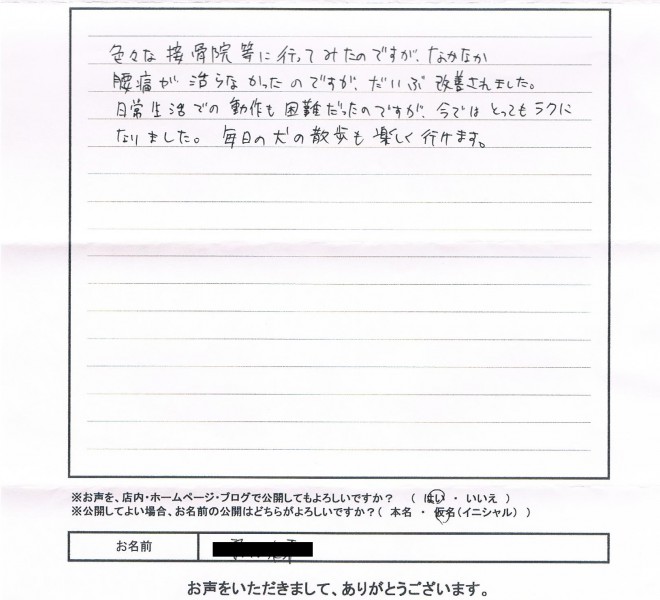 色々な接骨院等に行ってみたのですが、なかなか
腰痛が治らなかったのですが、だいぶ改善されました。
日常生活での動作も困難だったのですが、今ではとってもラクに
なりました。毎日の犬の散歩も楽しく行けます。
※お声を、店内・ホームページ・ブログで公開してもよろしいですか？ （ はい ・ いいえ ）
※公開してよい場合、お名前の公開はどちらがよろしいですか？（ 本名 ・ 仮名（イニシャル） ）
お名前
お声をいただきまして、ありがとうございます。